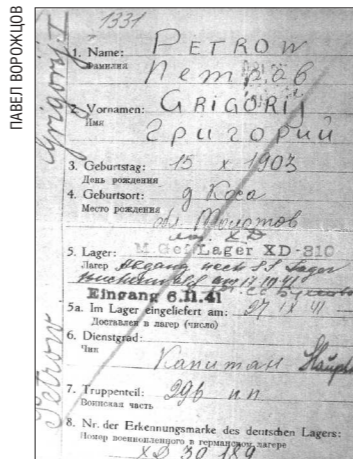 ПАВЕЛ ВОРОЖЦОВ
1331
1. Name: PETROW
Фамилия Петров
2. Vornamen: GRIGORIJ
Имя Григорий
3. Geburtstag: 15 X 1903
День рождения
4. Geburtsort: д Коса
Место рождения Молотов
5. Lager: Lager XD-310
Лагерь Abgang nach SS Lager
Buchenwald am 17.10.41
Eingang 6.11.41
5a. Im Lager eingeliefert am: 27 IX 41
Доставлен в лагерь (число)
6. Dienstgrad:
Чин Капитан
7. Truppenteil: 296 пп
Воинская часть
8. Nr. der Erkennungsmarke des deutschen Lagers:
Номер военнопленного в германском лагере
XD 30 189
Grigorij
Petrow